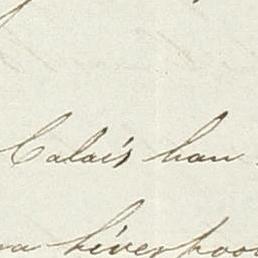 Calais han
na liverpool